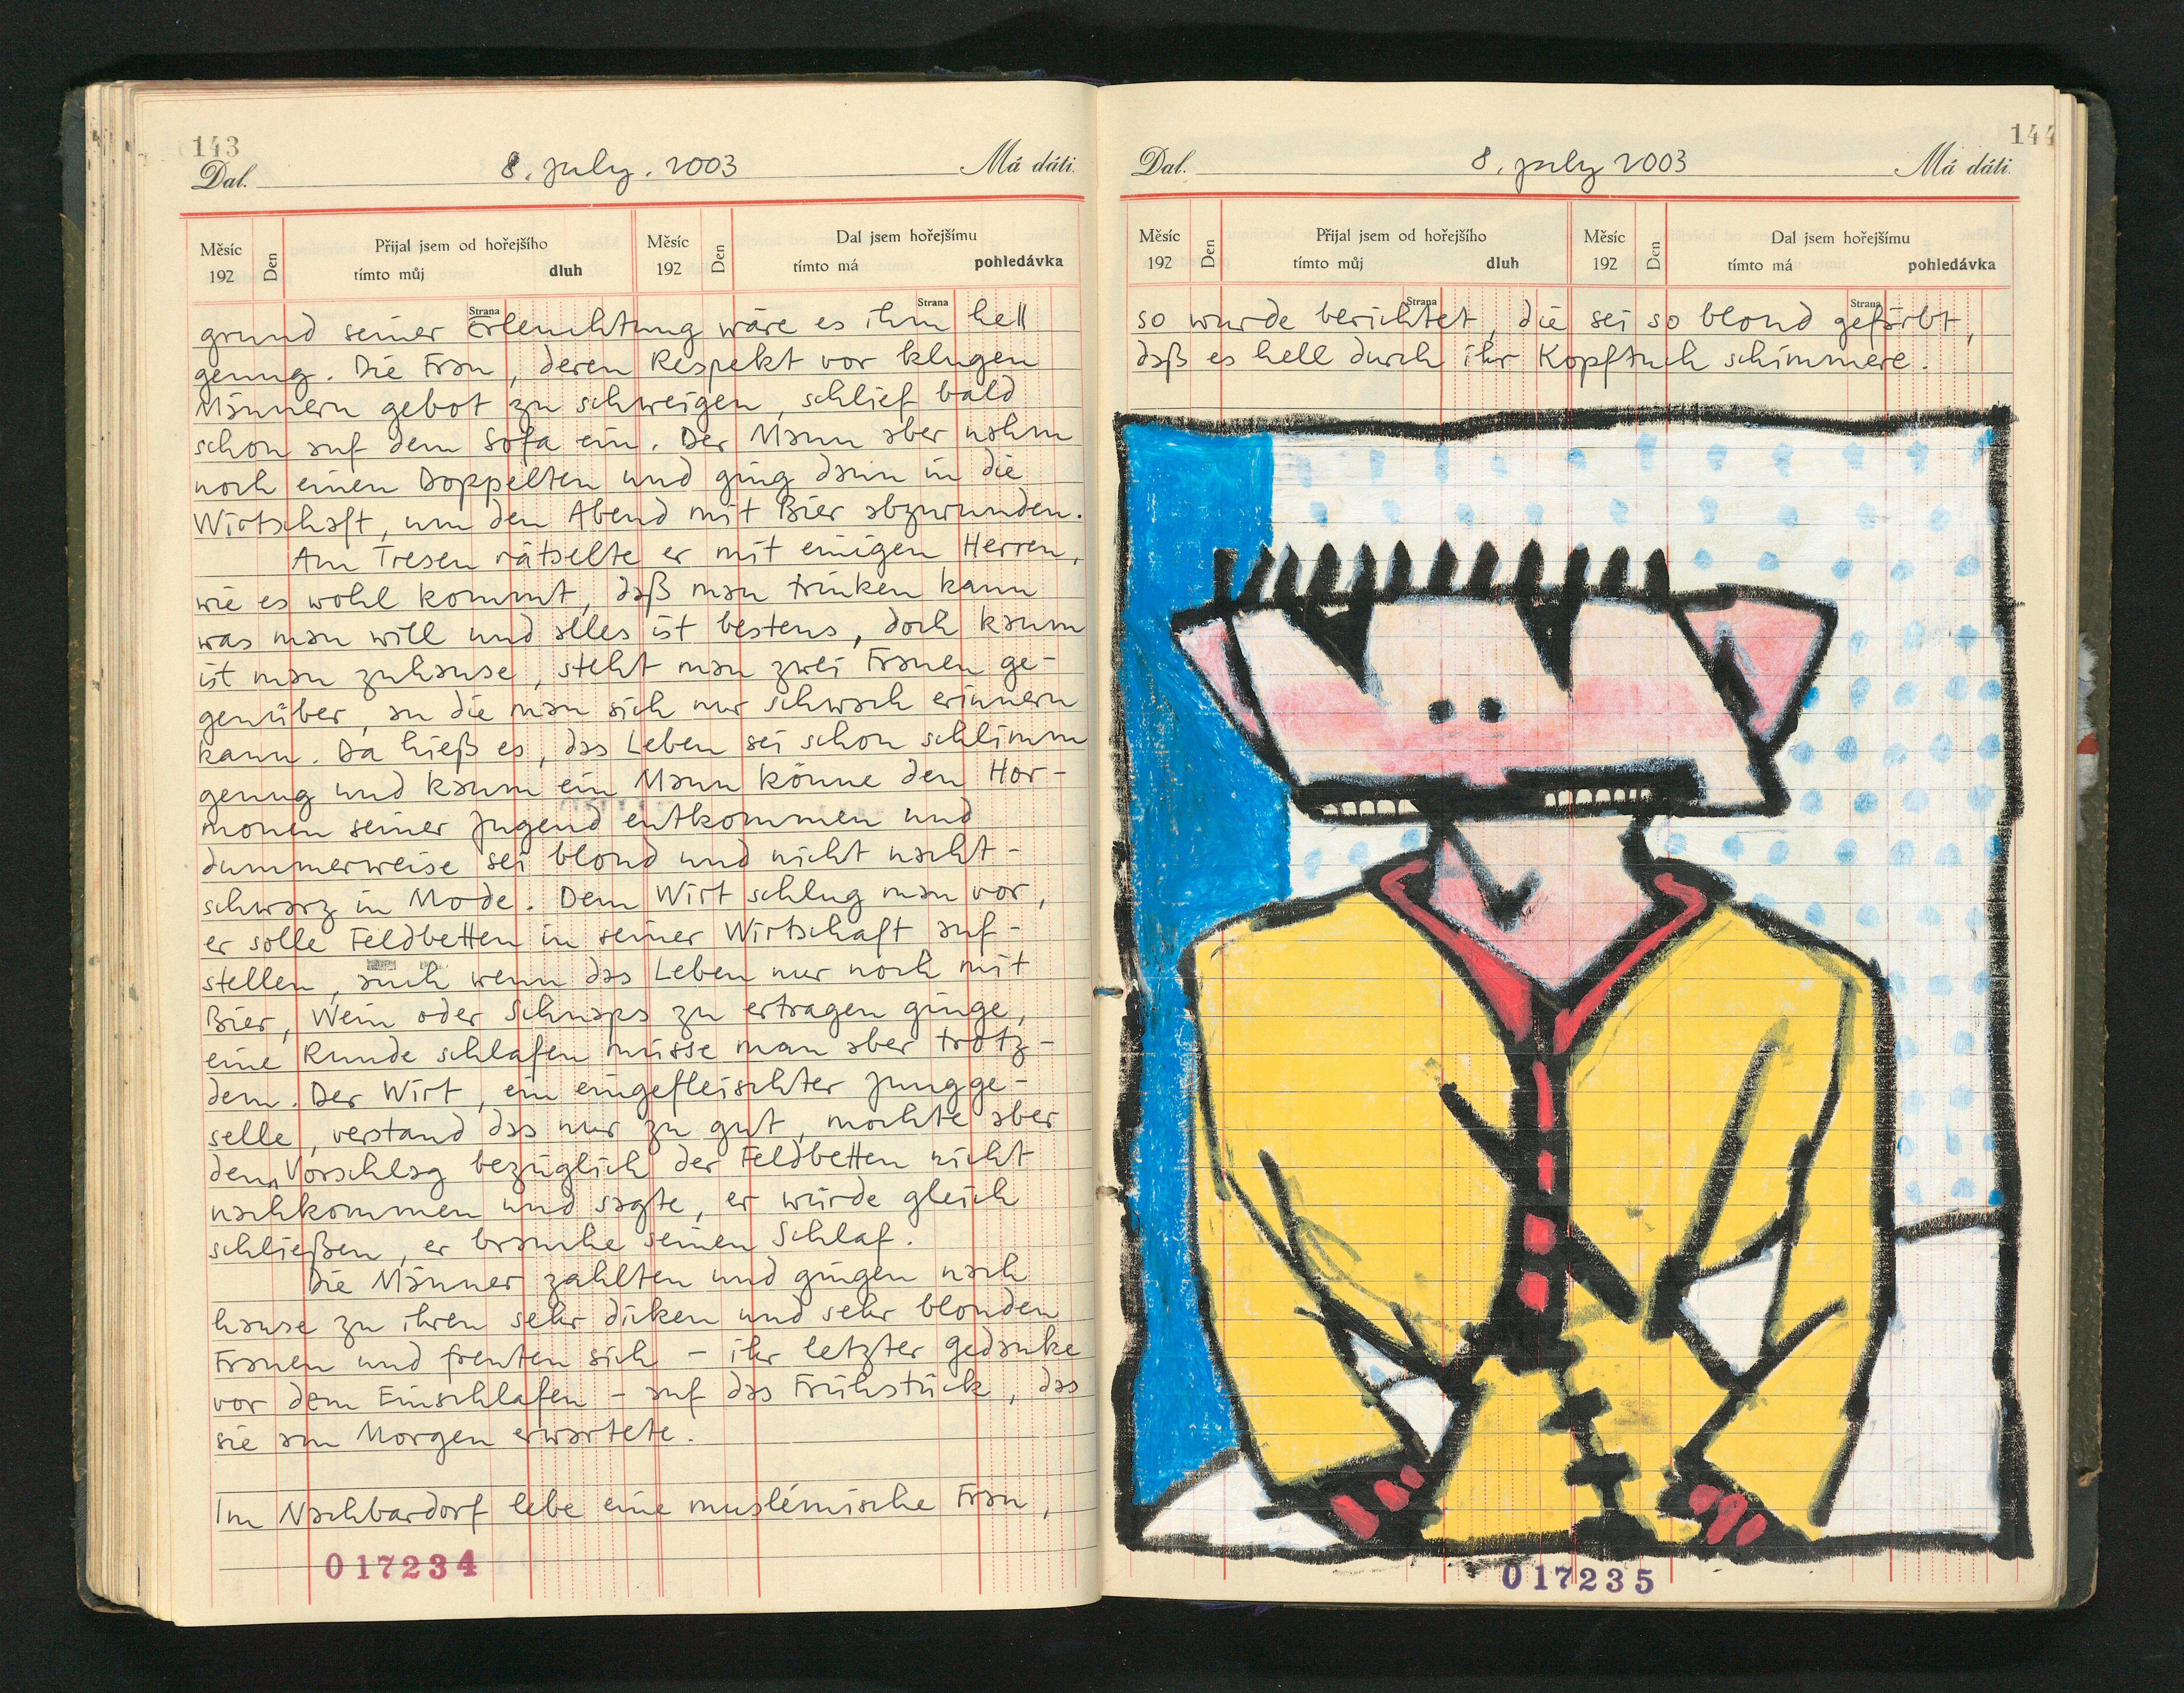 143
Dal. 8. july. 2003 Má dáti.
Měsíc Den Přijal jsem od hořejšího Měsíc Den Dal jsem hořejšímu
192 tímto můj dluh 192 tímto má pohledávka
Strana Strana
grund seiner Erleuchtung wäre es ihm hell
genug. Die Frau, deren Respekt vor klugen
Männern gebot zu schweigen, schlief bald
schon auf dem Sofa ein. Der Mann aber nahm
noch einen Doppelten und ging dann in die
Wirtschaft, um den Abend mit Bier abzurunden.
Am Tresen rätselte er mit einigen Herren,
wie es wohl kommt, daß man trinken kann
was man will und alles ist bestens, doch kaum
ist man zuhause, steht man zwei Frauen ge-
genüber, an die man sich nur schwach erinnern
kann. Da hieß es, das Leben sei schon schlimm
genug und kaum ein Mann könne den Hor-
monen seiner Jugend entkommen und
dummerweise sei blond und nicht nacht-
schwarz in Mode. Dem Wirt schlug man vor,
er solle Feldbetten in seiner Wirtschaft auf-
stellen, auch wenn das Leben nur noch mit
Bier, Wein oder Schnaps zu ertragen ginge,
eine Runde schlafen müsse man aber trotz-
dem. Der Wirt, ein eingefleischter Jungge-
selle, verstand das nur zu gut, mochte aber
dem Vorschlag bezüglich der Feldbetten nicht
nachkommen und sagte, er würde gleich
schließen, er brauche seinen Schlaf.
Die Männer zahlten und gingen nach
hause zu ihren sehr dicken und sehr blonden
Frauen und freuten sich – ihr letzter Gedanke
vor dem Einschlafen – auf das Frühstück, das
sie am Morgen erwartete.
Im Nachbardorf lebe eine muslimische Frau,
017234
144
Dal. 8. july 2003 Má dáti.
Měsíc Den Přijal jsem od hořejšího Měsíc Den Dal jsem hořejšímu
192 tímto můj dluh 192 tímto má pohledávka
Strana Strana
so wurde berichtet, die sei so blond gefärbt,
daß es hell durch ihr Kopftuch schimmere.
017235